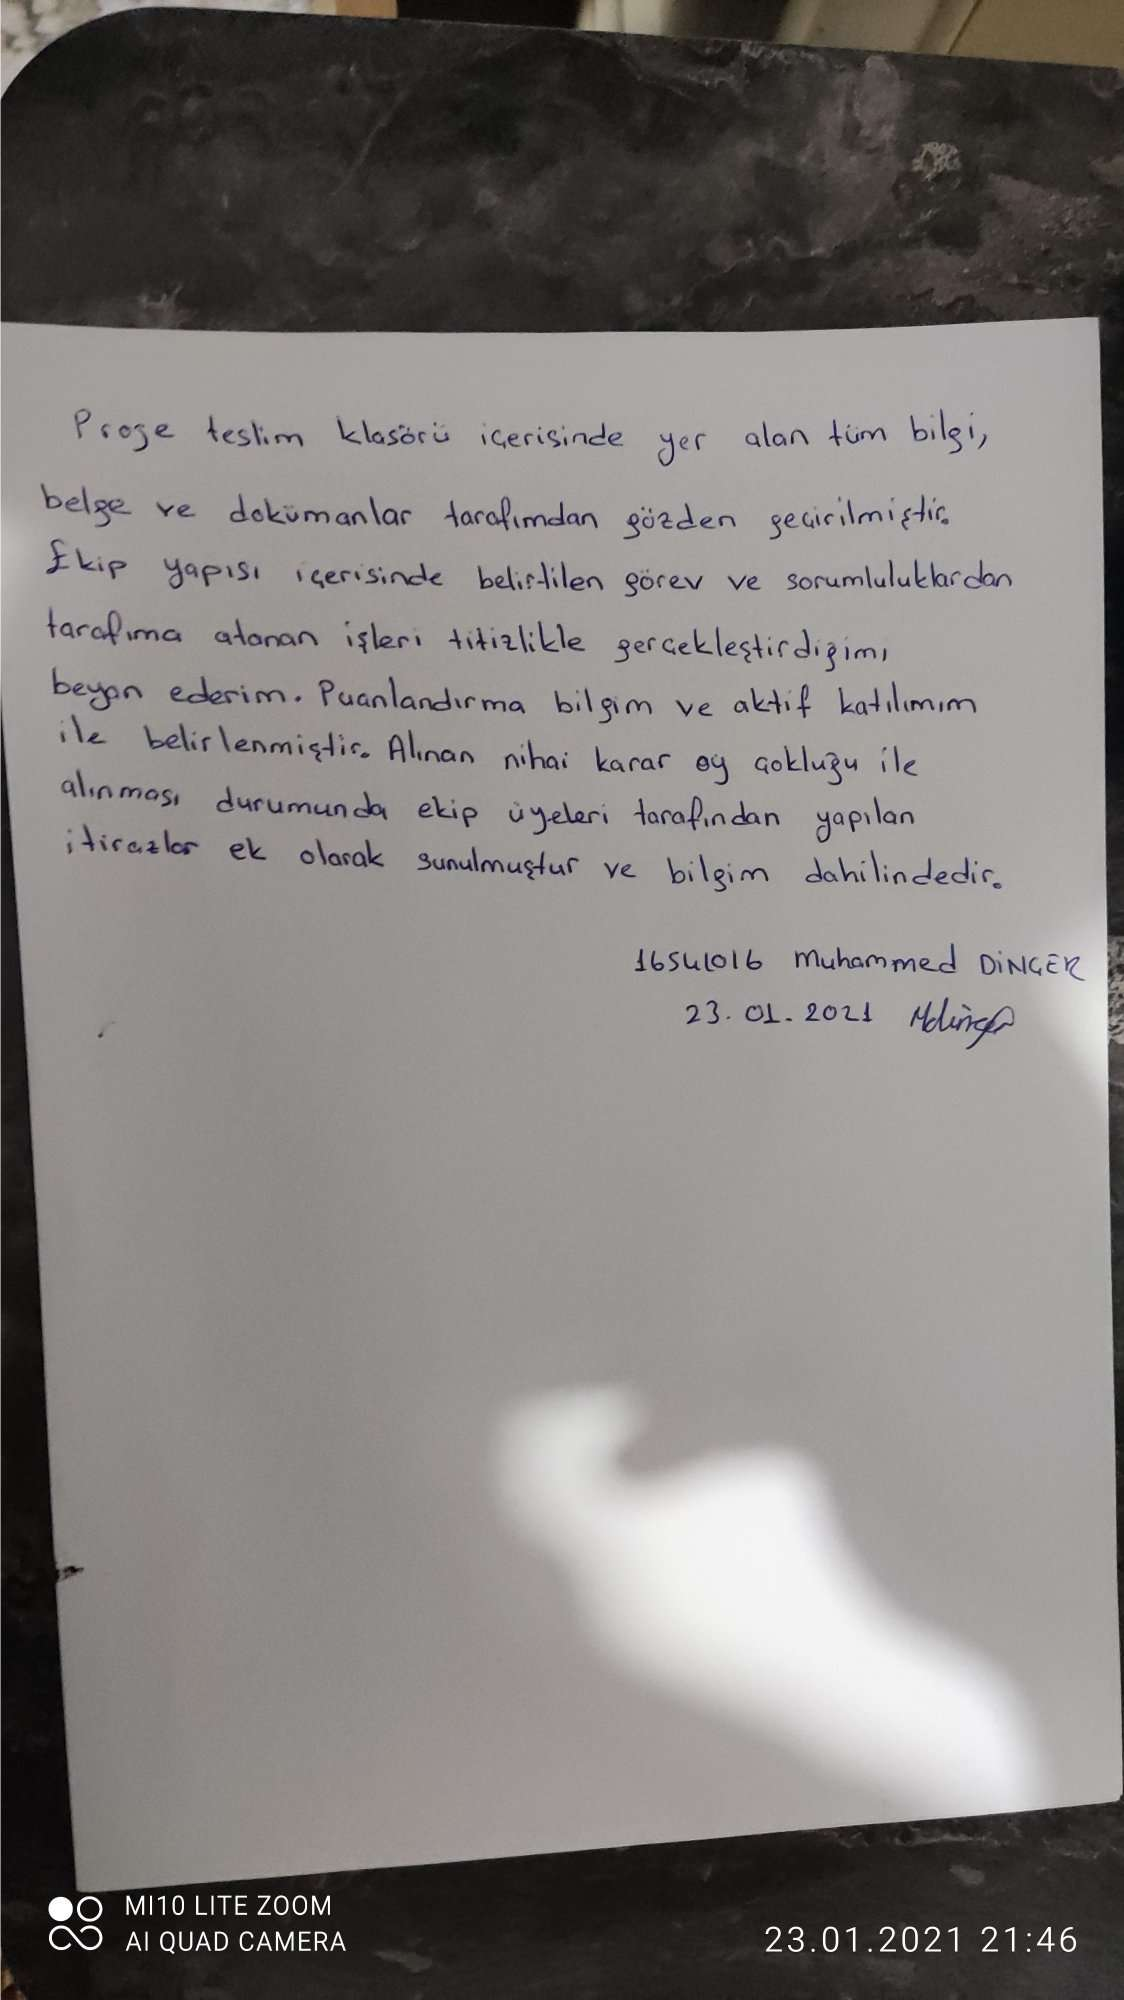 Proje teslim klasörü içerisinde yer alan tüm bilgi,
belge ve dokümanlar tarafımdan gözden geçirilmiştir.
Ekip yapısı içerisinde belirtilen görev ve sorumluluklardan
tarafıma atanan işleri titizlikle gerçekleştirdiğimi
beyan ederim. Puanlandırma bilgim ve aktif katılımım
ile belirlenmiştir. Alınan nihai karar oy çokluğu ile
alınması durumunda ekip üyeleri tarafından yapılan
itirazlar ek olarak sunulmuştur ve bilgim dahilindedir.
16541016 Muhammed DİNÇER
23.01.2021
MI10 LITE ZOOM
AI QUAD CAMERA
23.01.2021 21:46